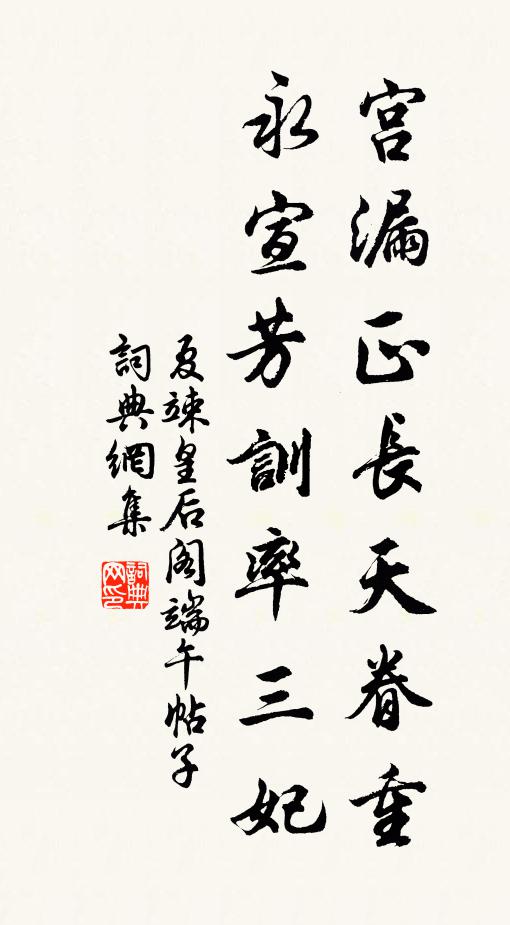 宮漏正長天眷重
永宣芳訓率三妃
夏竦皇后阁端午帖子
詞典網集
詞典网印